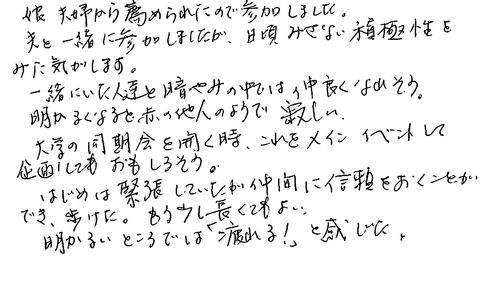 娘夫婦から薦められたので参加しました。
夫と一緒に参加しましたが、日頃みせない積極性を
みた気がします。
一緒にいた人達と暗やみの中では仲良くなれそう。
明かるくなると赤の他人のようで寂しい。
大学の同期会を開く時、これをメインイベントして
企画してもおもしろそう。
はじめは緊張していたが仲間に信頼をおくことが
でき、歩けた。もう少し長くてもよい。
明かるいところでは「疲れる!」と感じた。